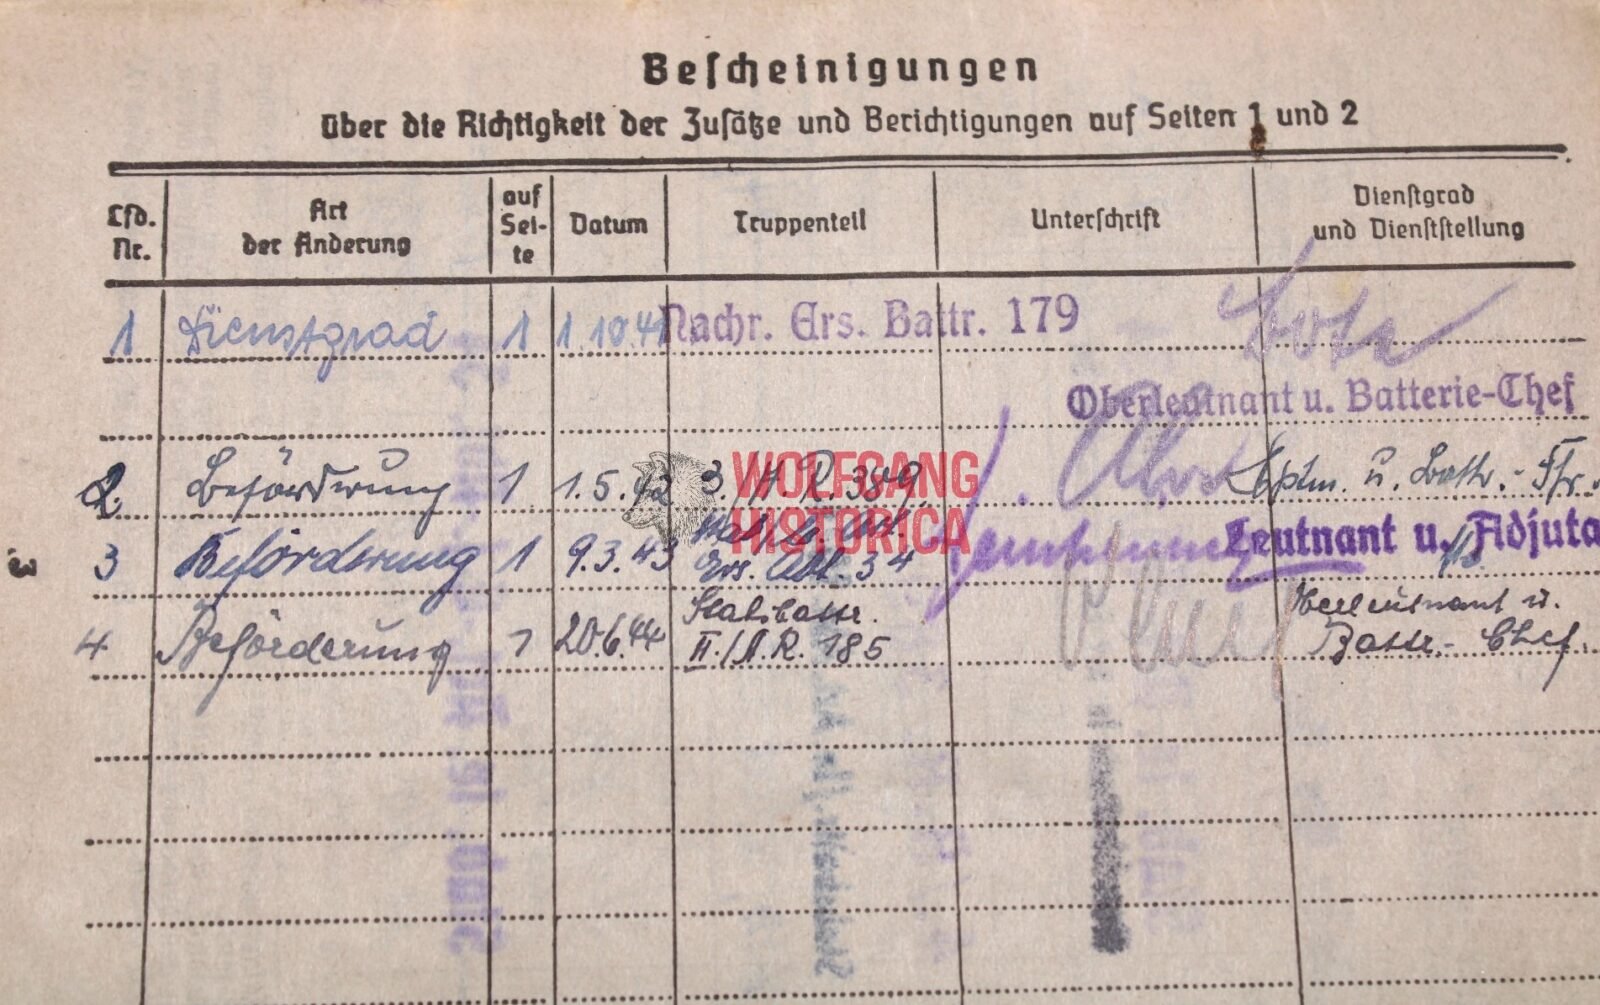 Bescheinigungen
über die Richtigkeit der Zusätze und Berichtigungen auf Seiten 1 und 2
Lfd. Nr.
Art der Änderung
auf Sei- te
Datum
Truppenteil
Unterschrift
Dienstgrad und Dienststellung
1 Dienstgrad 1 1.10.41 Nachr. Ers. Battr. 179
Oberleutnant u. Batterie-Chef
2. Beförderung 1 1.5.42 3./A.R. 389 Hptm. u. Battr.-Fhr.
3 Beförderung 1 9.3.43 Ers. Abt. 34 Leutnant u. Adjuta
4 Beförderung 1 20.6.44 Stabsbattr. Oberleutnant u.
II./A.R. 185 Battr.-Chef.
WOLFGANG
HISTORICA
3